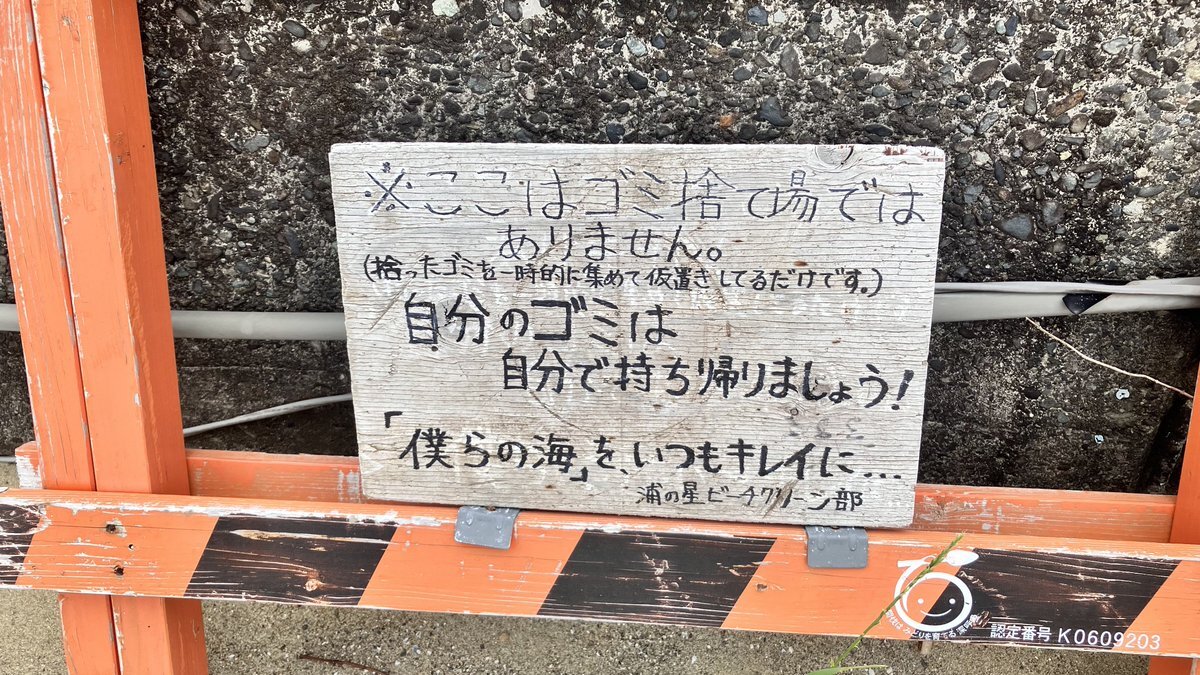 ※ここはゴミ捨て場では
ありません。
(拾ったゴミを一時的に集めて仮置きしてるだけです。)
自分のゴミは
自分で持ち帰りましょう!
「僕らの海」を、いつもキレイに...
浦の星ビーチクリーン部
認定番号 K0609203